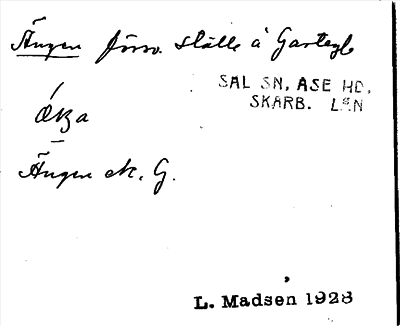 Ängen förr. ställe å Gartegl
SAL SN, ASE HD,
SKARB. LÄN
Ängen ek. G.
L. Madsen 1928